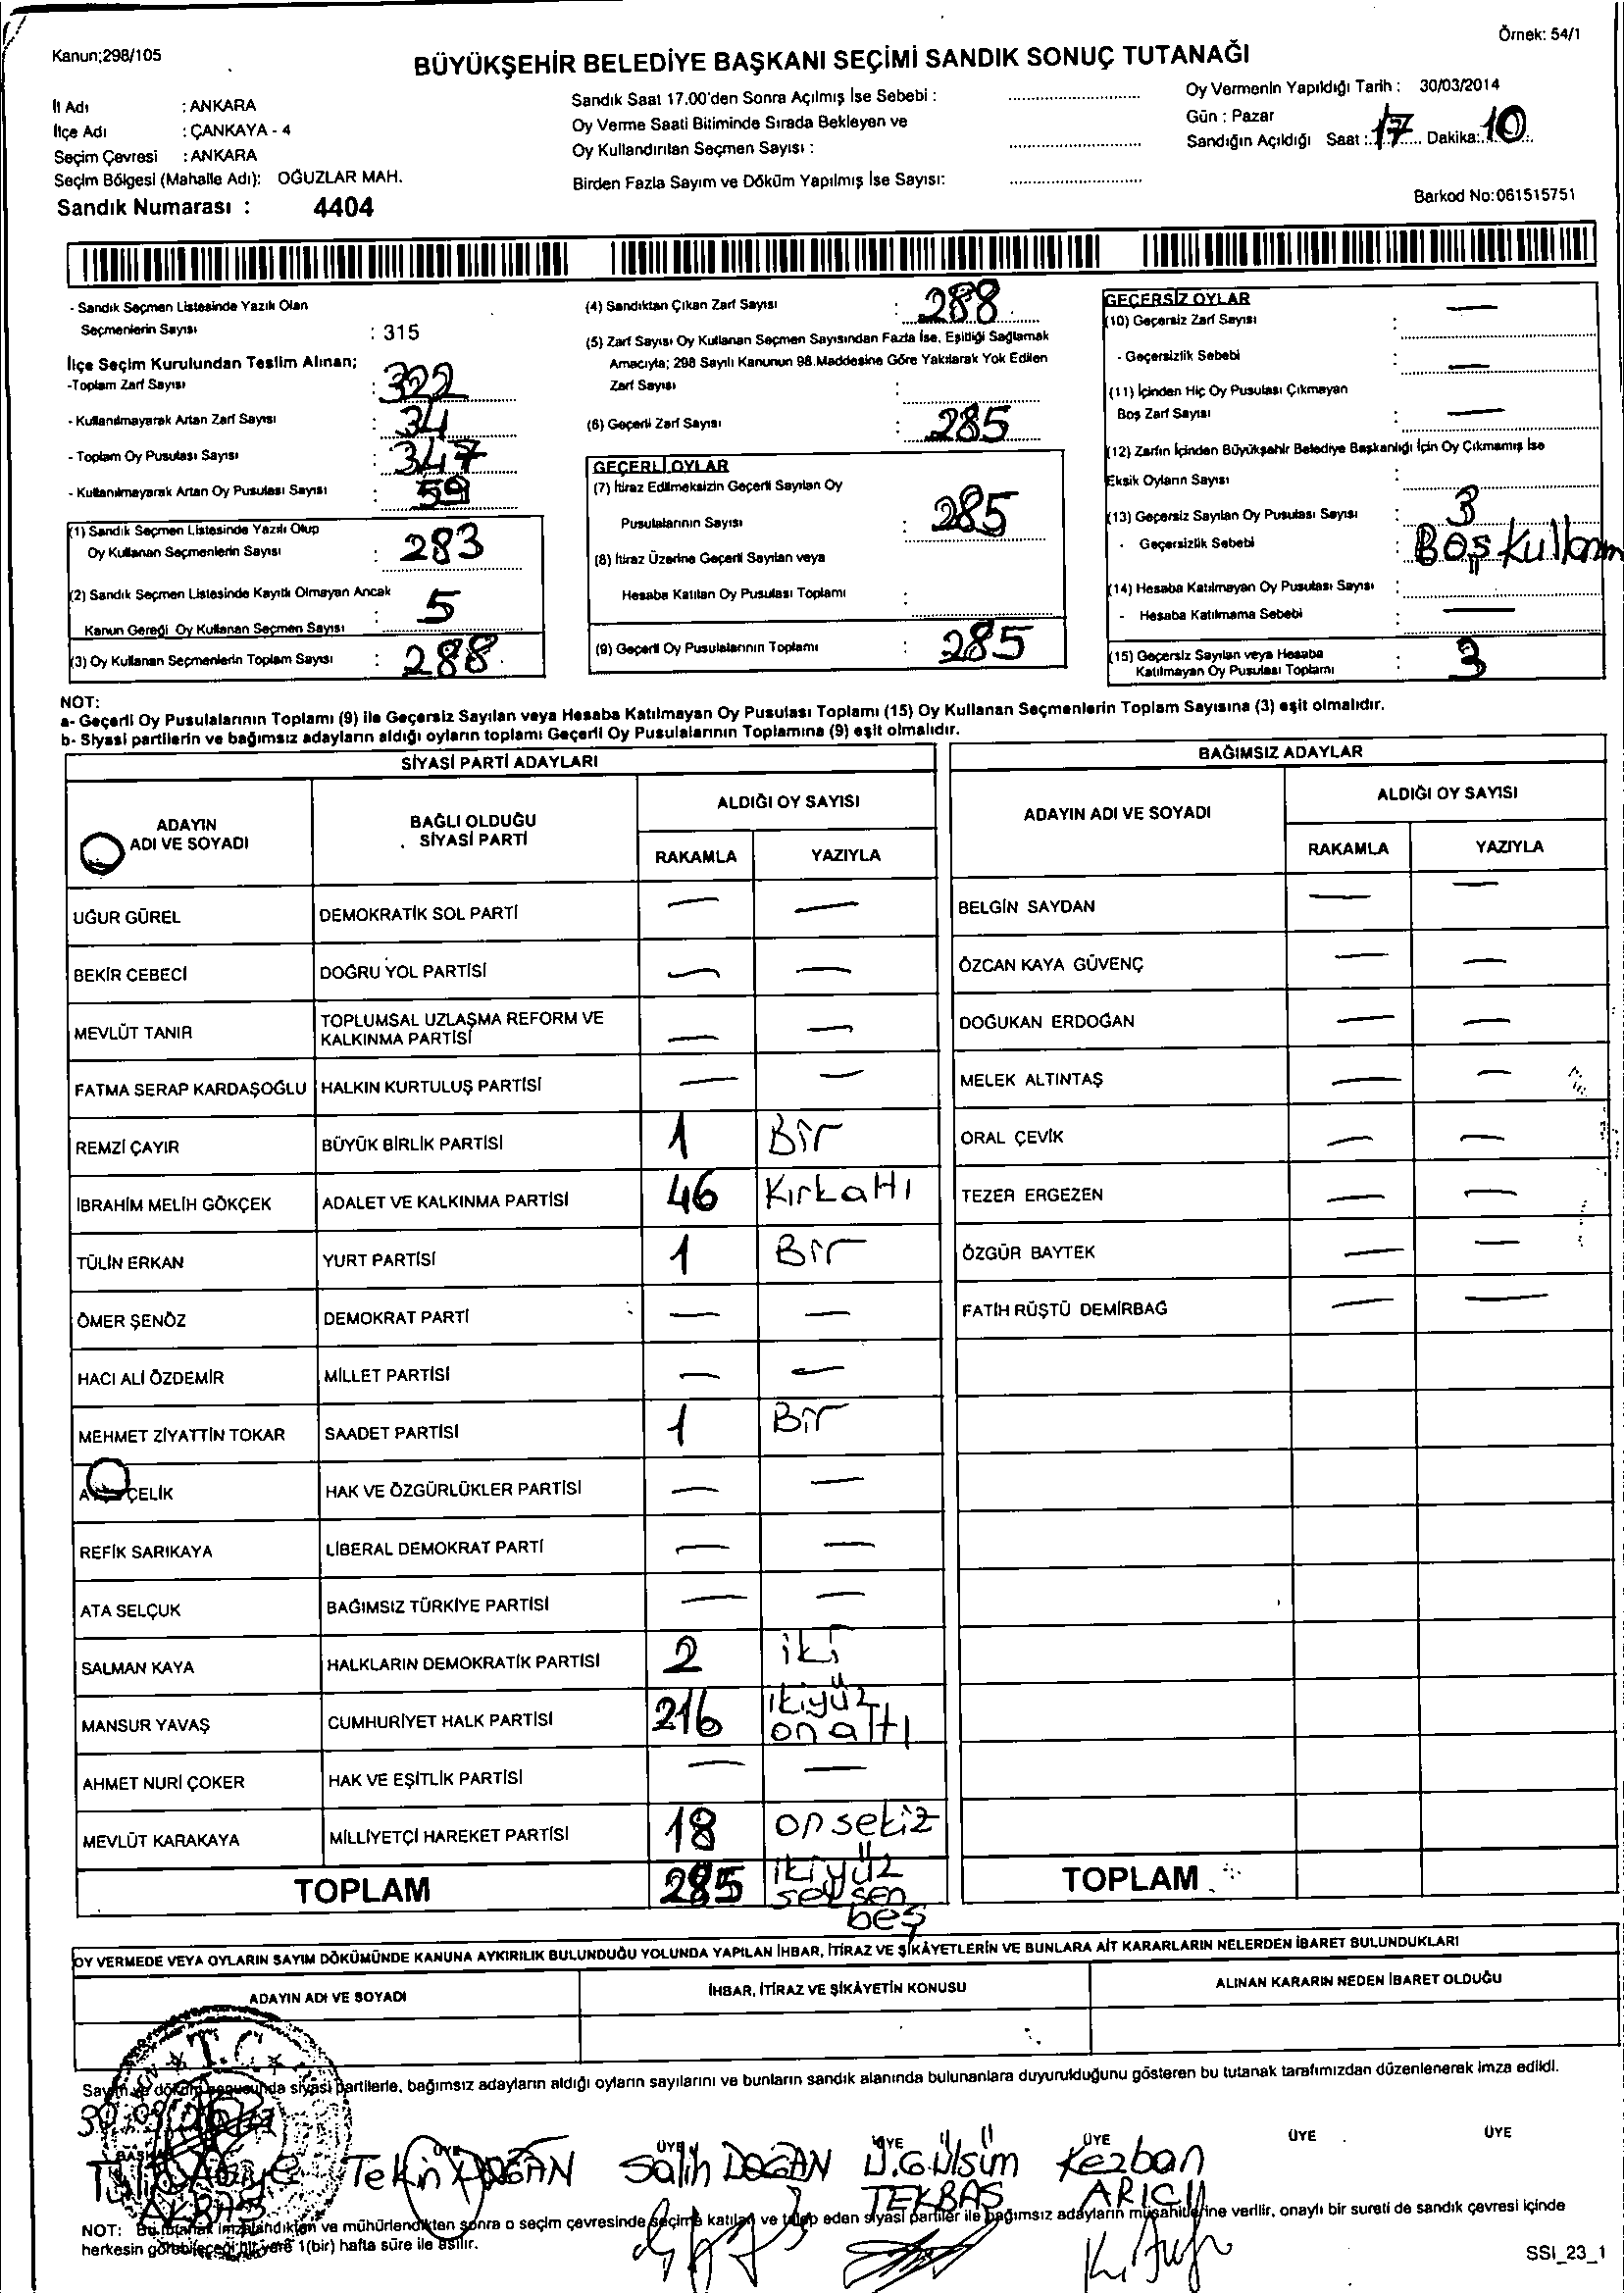 Örnek: 54/1
Kanun;298/105
BÜYÜKŞEHİR BELEDİYE BAŞKANI SEÇİMİ SANDIK SONUÇ TUTANAĞI
İl Adı : ANKARA
İlçe Adı : ÇANKAYA - 4
Seçim Çevresi : ANKARA
Seçim Bölgesi (Mahalle Adı): OĞUZLAR MAH.
Sandık Numarası : 4404
Sandık Saat 17.00'den Sonra Açılmış İse Sebebi :
Oy Verme Saati Bitiminde Sırada Bekleyen ve
Oy Kullandırılan Seçmen Sayısı :
Birden Fazla Sayım ve Döküm Yapılmış İse Sayısı:
Oy Vermenin Yapıldığı Tarih : 30/03/2014
Gün : Pazar
Sandığın Açıldığı Saat : 17 Dakika: 10
Barkod No:061515751
- Sandık Seçmen Listesinde Yazılı Olan
Seçmenlerin Sayısı : 315
İlçe Seçim Kurulundan Teslim Alınan;
-Toplam Zarf Sayısı : 322
- Kullanılmayarak Artan Zarf Sayısı : 34
- Toplam Oy Pusulası Sayısı : 347
- Kullanılmayarak Artan Oy Pusulası Sayısı : 59
(1) Sandık Seçmen Listesinde Yazılı Olup
Oy Kullanan Seçmenlerin Sayısı : 283
(2) Sandık Seçmen Listesinde Kayıtlı Olmayan Ancak
Kanun Gereği Oy Kullanan Seçmen Sayısı : 5
(3) Oy Kullanan Seçmenlerin Toplam Sayısı : 288
(4) Sandıktan Çıkan Zarf Sayısı : 288
(5) Zarf Sayısı Oy Kullanan Seçmen Sayısından Fazla İse, Eşitliği Sağlamak
Amacıyla; 298 Sayılı Kanunun 98.Maddesine Göre Yakılarak Yok Edilen
Zarf Sayısı :
(6) Geçerli Zarf Sayısı : 285
GEÇERLİ OYLAR
(7) İtiraz Edilmeksizin Geçerli Sayılan Oy
Pusulalarının Sayısı : 285
(8) İtiraz Üzerine Geçerli Sayılan veya
Hesaba Katılan Oy Pusulası Toplamı :
(9) Geçerli Oy Pusulalarının Toplamı : 285
GEÇERSİZ OYLAR
(10) Geçersiz Zarf Sayısı : —
- Geçersizlik Sebebi : —
(11) İçinden Hiç Oy Pusulası Çıkmayan
Boş Zarf Sayısı : —
(12) Zarfın İçinden Büyükşehir Belediye Başkanlığı İçin Oy Çıkmamış İse
Eksik Oyların Sayısı :
(13) Geçersiz Sayılan Oy Pusulası Sayısı : 3
- Geçersizlik Sebebi : Boş
(14) Hesaba Katılmayan Oy Pusulası Sayısı :
- Hesaba Katılmama Sebebi : —
(15) Geçersiz Sayılan veya Hesaba
Katılmayan Oy Pusulası Toplamı : 3
NOT:
a- Geçerli Oy Pusulalarının Toplamı (9) ile Geçersiz Sayılan veya Hesaba Katılmayan Oy Pusulası Toplamı (15) Oy Kullanan Seçmenlerin Toplam Sayısına (3) eşit olmalıdır.
b- Siyasi partilerin ve bağımsız adayların aldığı oyların toplamı Geçerli Oy Pusulalarının Toplamına (9) eşit olmalıdır.
SİYASİ PARTİ ADAYLARI
ADAYIN ADI VE SOYADI
BAĞLI OLDUĞU SİYASİ PARTİ
ALDIĞI OY SAYISI
RAKAMLA YAZIYLA
UĞUR GÜREL DEMOKRATİK SOL PARTİ — —
BEKİR CEBECİ DOĞRU YOL PARTİSİ — —
MEVLÜT TANIR TOPLUMSAL UZLAŞMA REFORM VE KALKINMA PARTİSİ — —
FATMA SERAP KARDAŞOĞLU HALKIN KURTULUŞ PARTİSİ — —
REMZİ ÇAYIR BÜYÜK BİRLİK PARTİSİ 1 Bir
İBRAHİM MELİH GÖKÇEK ADALET VE KALKINMA PARTİSİ 46 Kırkaltı
TÜLİN ERKAN YURT PARTİSİ 1 Bir
ÖMER ŞENÖZ DEMOKRAT PARTİ — —
HACI ALİ ÖZDEMİR MİLLET PARTİSİ — —
MEHMET ZİYATTİN TOKAR SAADET PARTİSİ 1 Bir
ÇELİK HAK VE ÖZGÜRLÜKLER PARTİSİ — —
REFİK SARIKAYA LİBERAL DEMOKRAT PARTİ — —
ATA SELÇUK BAĞIMSIZ TÜRKİYE PARTİSİ — —
SALMAN KAYA HALKLARIN DEMOKRATİK PARTİSİ 2 iki
MANSUR YAVAŞ CUMHURİYET HALK PARTİSİ 216 ikiyüz on altı
AHMET NURİ ÇOKER HAK VE EŞİTLİK PARTİSİ — —
MEVLÜT KARAKAYA MİLLİYETÇİ HAREKET PARTİSİ 18 onsekiz
TOPLAM 285 ikiyüz seksen beş
BAĞIMSIZ ADAYLAR
ADAYIN ADI VE SOYADI
ALDIĞI OY SAYISI
RAKAMLA YAZIYLA
BELGİN SAYDAN — —
ÖZCAN KAYA GÜVENÇ — —
DOĞUKAN ERDOĞAN — —
MELEK ALTINTAŞ — —
ORAL ÇEVİK — —
TEZER ERGEZEN — —
ÖZGÜR BAYTEK — —
FATİH RÜŞTÜ DEMİRBAĞ — —
TOPLAM
OY VERMEDE VEYA OYLARIN SAYIM DÖKÜMÜNDE KANUNA AYKIRILIK BULUNDUĞU YOLUNDA YAPILAN İHBAR, İTİRAZ VE ŞİKÂYETLERİN VE BUNLARA AİT KARARLARIN NELERDEN İBARET BULUNDUKLARI
ADAYIN ADI VE SOYADI
İHBAR, İTİRAZ VE ŞİKÂYETİN KONUSU
ALINAN KARARIN NEDEN İBARET OLDUĞU
T.C.
Sayım ve döküm sonucunda siyasi partilerle, bağımsız adayların aldığı oyların sayılarını ve bunların sandık alanında bulunanlara duyurulduğunu gösteren bu tutanak tarafımızdan düzenlenerek imza edildi.
ÜYE ÜYE ÜYE ÜYE ÜYE ÜYE
Tekin DOĞAN Salih DOĞAN Ü.Gülsüm TEKBAŞ Kezban ARICI
NOT: Bu tutanak imzalandıktan ve mühürlendikten sonra o seçim çevresinde seçime katılan ve talep eden siyasi partiler ile bağımsız adayların müşahitlerine verilir, onaylı bir sureti de sandık çevresi içinde
herkesin görebileceği bir yere 1(bir) hafta süre ile asılır.
SSI_23_1